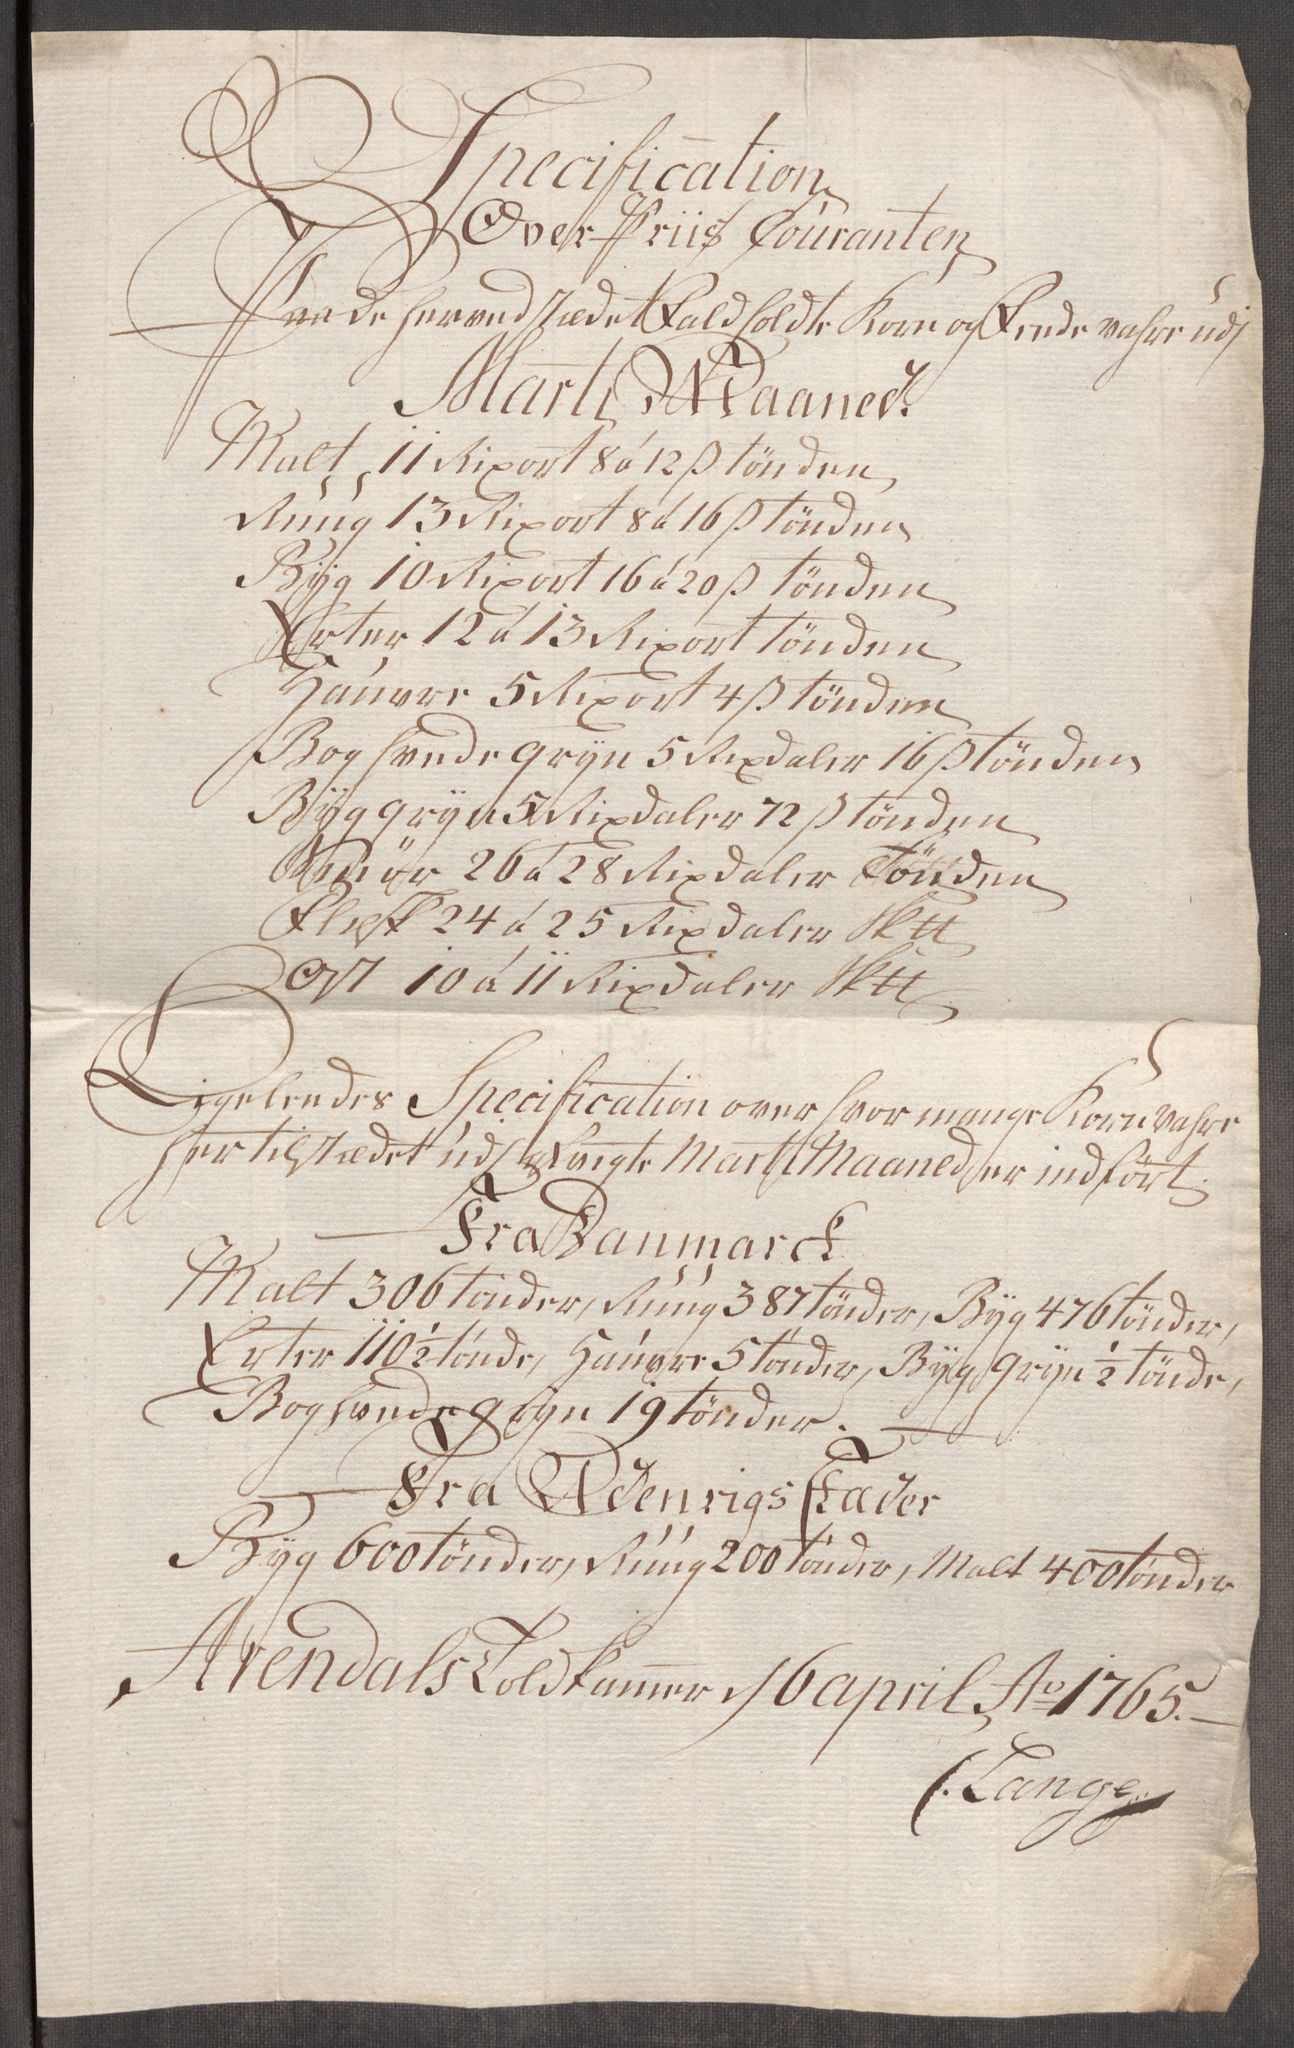 Specification
Over Priis Couranten
Paa de her ved stædet Fald holdte Korn og Feede vahre udj
Marti Maaned.
Malt 11 Rixort 8 á 12 β tönden
Rúúg 13 Rixort 8 á 16 β tönden
Byg 10 Rixort 16 á 20 β tönden
Erter 12 á 13 Rixort tönden
Haúvre 5 Rixort 4 β tönden
Boghvede gryn 5 Rixdaler 16 β tönden
Byg gryn 5 Rixdaler 72 β tönden
Smör 26 á 28 Rixdaler Tönden
Flesk 24 á 25 Rixdaler Sk℔
Ost 10 á 11 Rixdaler Sk℔
Ligeleedes Specification over hvor mange Korn vahre
her til stædet údj Marti Maaned er indfört
Fra Danmarck
Malt 306 tönder, Rúúg 387 tönder, Byg 476 tönder,
Erter 110½ tönde, Haúvre 5 tönder, Byg gryn ½ tönde,
Boghvede gryn 19 tönder.
Fra Udenrigs stæder
Byg 600 tönder, Rúúg 200 tönder, Malt 400 tönder
Arendals Toldkammer 16 april Ao 1765.
Lange